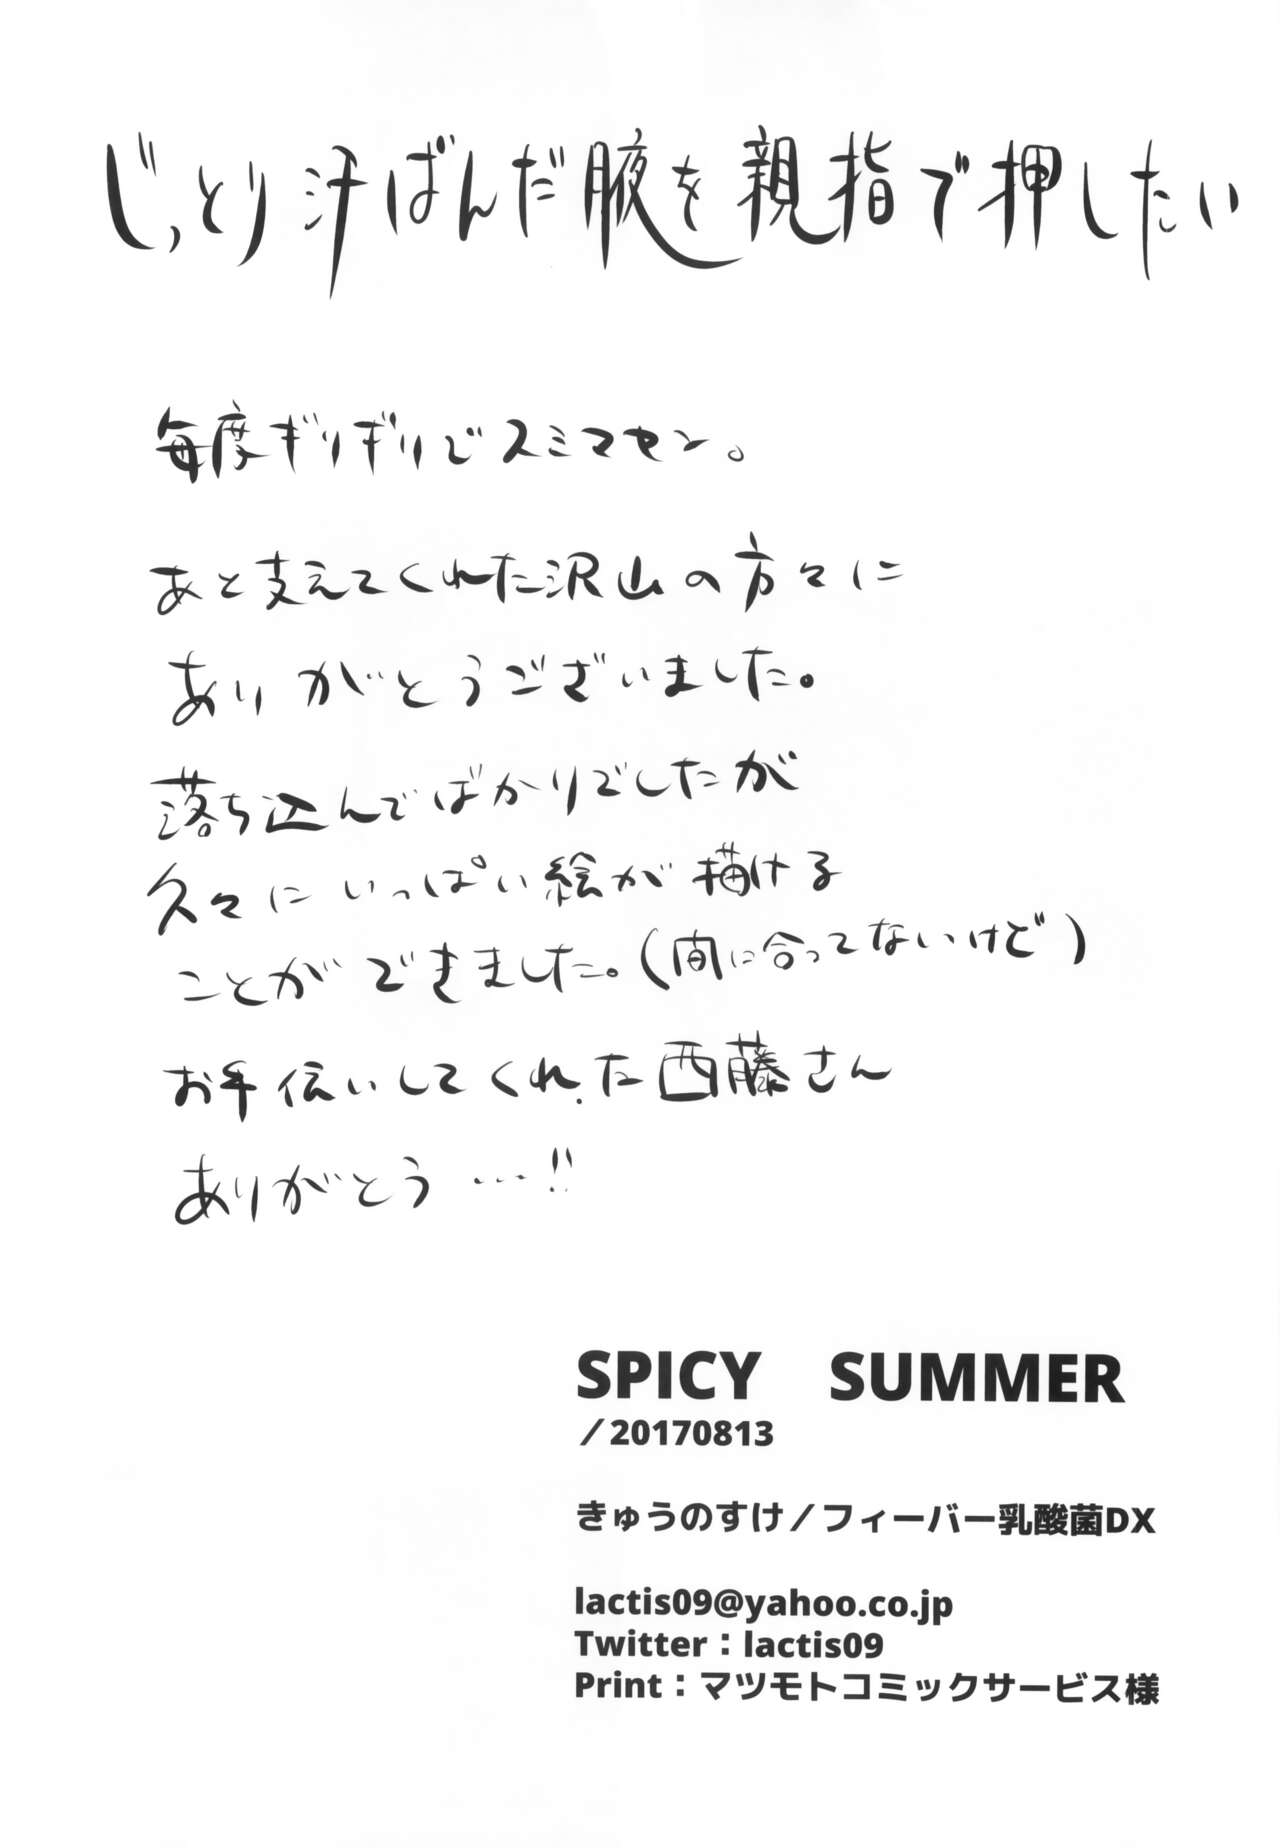 じっとり汗ばんだ腋を親指で押したい
毎度ギリギリでスミマセン。
あと支えてくれた沢山の方々に
ありがとうございました。
落ち込んでばかりでしたが
久々にいっぱい絵が描ける
ことができました。(間に合ってないけど)
お手伝いしてくれた西藤さん
ありがとう…!!
SPICY　SUMMER
／20170813
きゅうのすけ／フィーバー乳酸菌DX
lactis09@yahoo.co.jp
Twitter：lactis09
Print：マツモトコミックサービス様